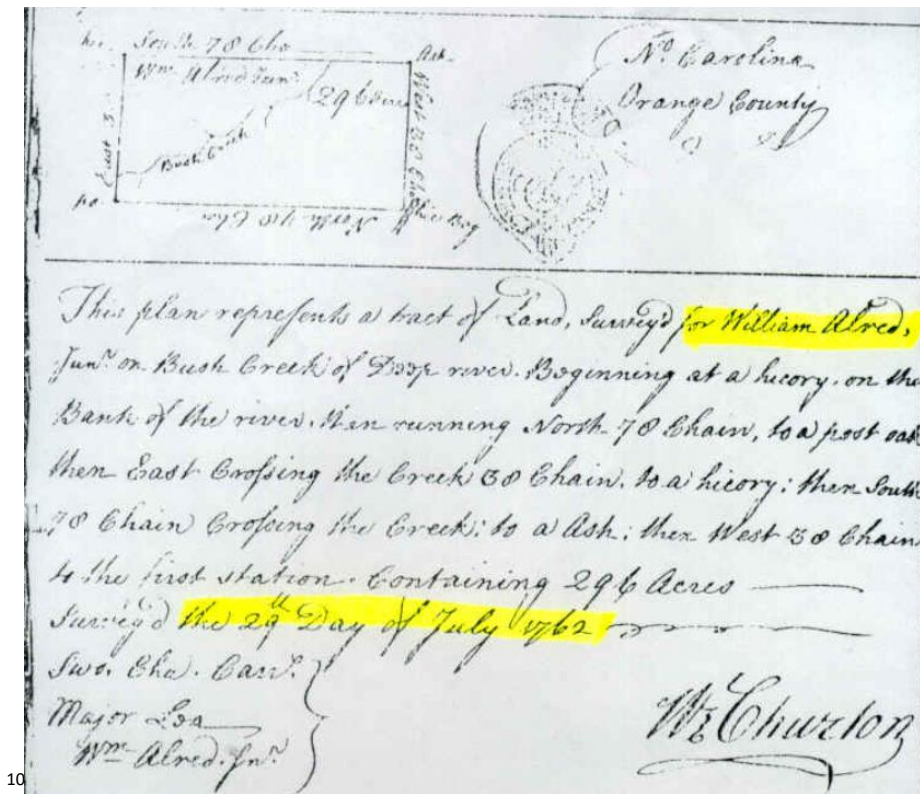 South 78 Cha
Ash
Wm. Alred Junr.
296 Acres
West 38 Cha
Bush Creek
East 3
po.
North 78 Cha
Hickory
No. Carolina
Orange County
This plan represents a tract of Land, Survey'd for William Alred,
Junr. on Bush Creek of Deep river. Beginning at a hicory. on the
Bank of the river. then running North 78 Chain, to a post oak
then East Crossing the Creek 38 Chain. to a hicory: then South
78 Chain Crossing the Creek: to a Ash: then West 38 Chain
to the first station. Containing 296 Acres
Survey'd the 29th Day of July 1762
Swo. Cha. Carrs.
Major Lea
Wm. Alred. Jnr.
Wm Churton
10